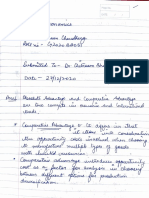 onomics
Choudhary
Submitted To - Dr.
Date - 27/12/2020
Absolute Advantage and Comparative Advantage
are two concepts in economics and international
trade.
* Comparative Advantage :- It differs in that
it takes into consideration
the opportunity costs involved when choosing
to manufacture multiple types of goods
with limited resources.
* Comparative advantage introduces opportunity
cost as a factor for analysis in choosing
between different options for production
diversification.